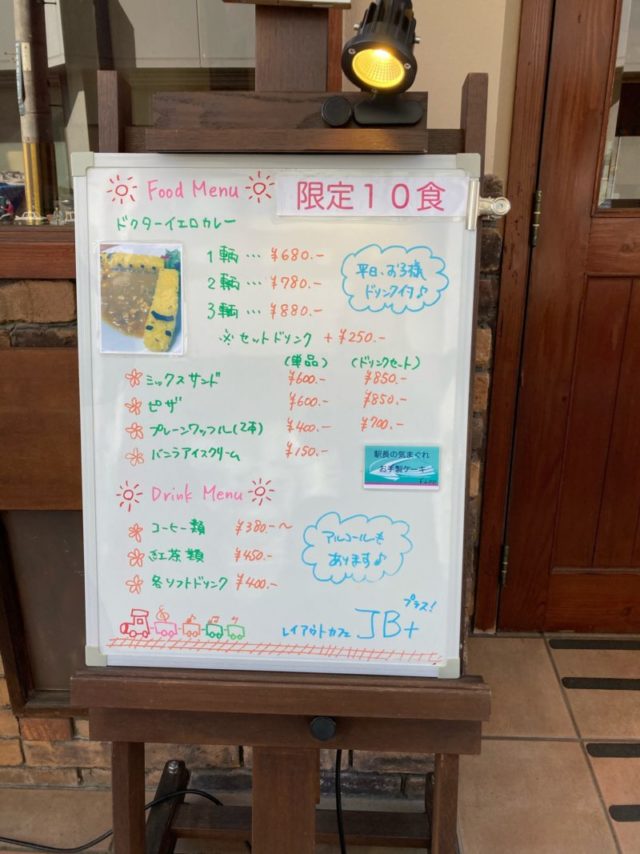 Food Menu
限定10食
ドクターイエロカレー
1輌…¥680.-
2輌…¥780.-
3輌…¥880.-
平日、お子様
ドリンク付♪
※セットドリンク +¥250.-
(単品) (ドリンクセット)
ミックスサンド ¥600.- ¥850.-
ピザ ¥600.- ¥850.-
プレーンワッフル(2本) ¥400.- ¥700.-
バニラアイスクリーム ¥150.-
駅長の気まぐれ
お手製ケーキ
Drink Menu
コーヒー類 ¥380.-~
紅茶類 ¥450.-
各ソフトドリンク ¥400.-
アルコールも
あります♪
レイアウトカフェ JB+
プラス!